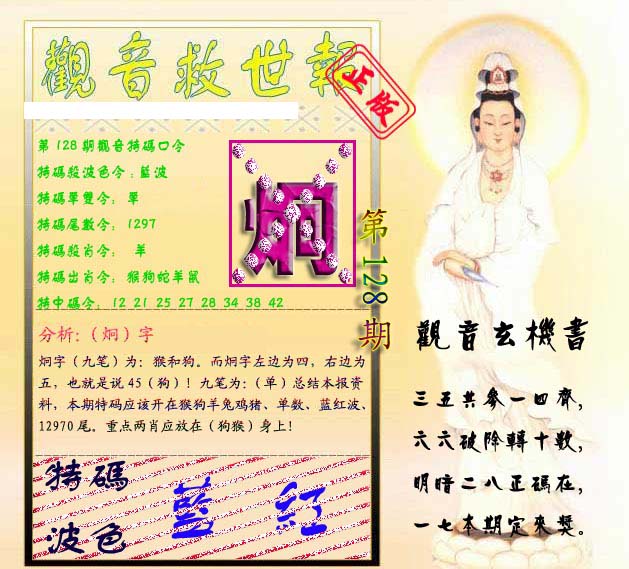 觀音救世報
正版
第128期觀音特碼口令
特碼殺波色令:藍波
特碼單雙令: 單
特碼尾數令: 1297
特碼殺肖令: 羊
特碼出肖令: 猴狗蛇羊鼠
特中碼令: 12 21 25 27 28 34 38 42
炯
第128期
分析:（炯）字
炯字（九笔）为：猴和狗。而炯字左边为四，右边为
五，也就是说45（狗）！九笔为：（单）总结本报资
料，本期特码应该开在猴狗羊兔鸡猪、单数、蓝红波、
12970尾。重点两肖应放在（狗猴）身上！
特碼
波色
藍 紅
觀音玄機書
三五共參一四齊，
六六破除轉十數，
明暗二八正碼在，
一七本期定來獎。